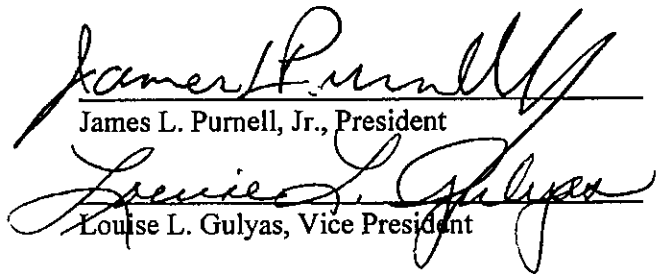 James L. Purnell Jr
James L. Purnell, Jr., President
Louise L. Gulyas
Louise L. Gulyas, Vice President